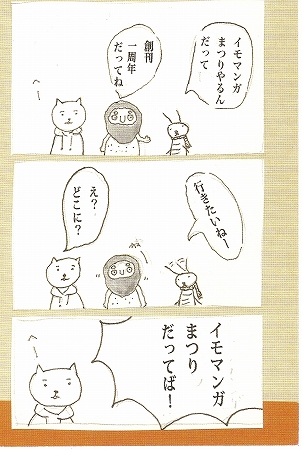 イモマンガ
まつりやるん
だって
創刊
一周年
だってね
へー
行きたいねー
え？
どこに？
イモマンガ
まつり
だってば！
へー